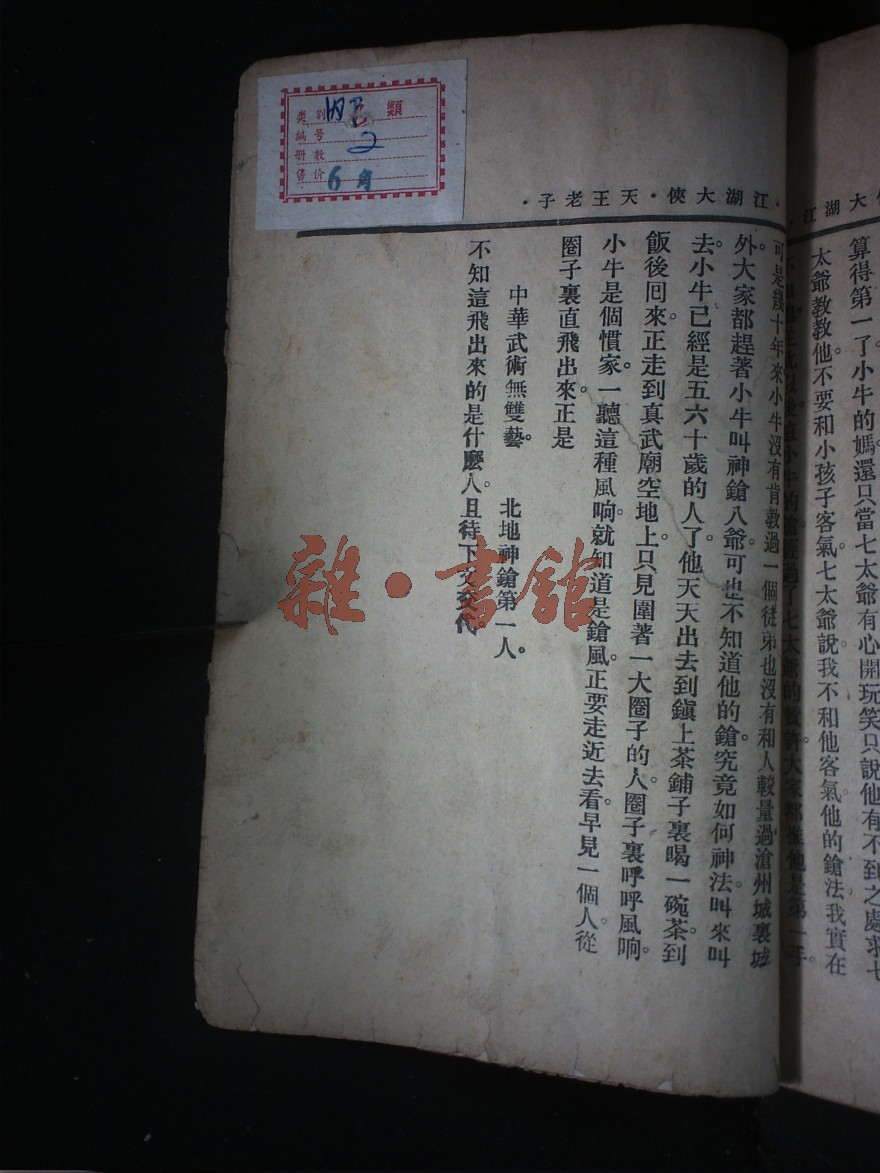 類別 類
編号 2
册數
售价 6角
·江湖大俠·天王老子·
大湖江·
算得第一了。小牛的媽還只當七太爺有心開玩笑只說他有不到之處求七
太爺教教他。不要和小孩子客氣。七太爺說我不和他客氣。他的鎗法我實在
七太爺的贊許大家都推他是第一手。
可是幾十年來小牛沒有肯教過一個徒弟也沒有和人較量過滄州城裏城
外。大家都趕著小牛叫神鎗八爺可也不知道他的鎗究竟如何神法。叫來叫
去。小牛已經是五六十歲的人了。他天天出去到鎭上茶鋪子裏喝一碗茶。到
飯後囘來。正走到真武廟空地上。只見圍著一大圈子的人。圈子裏呼呼風响。
小牛是個慣家。一聽這種風响。就知道是鎗風。正要走近去看。早見一個人從
圈子裏直飛出來。正是
中華武術無雙藝。 北地神鎗第一人。
不知這飛出來的是什麽人。且待下文交代。
雜·書舘